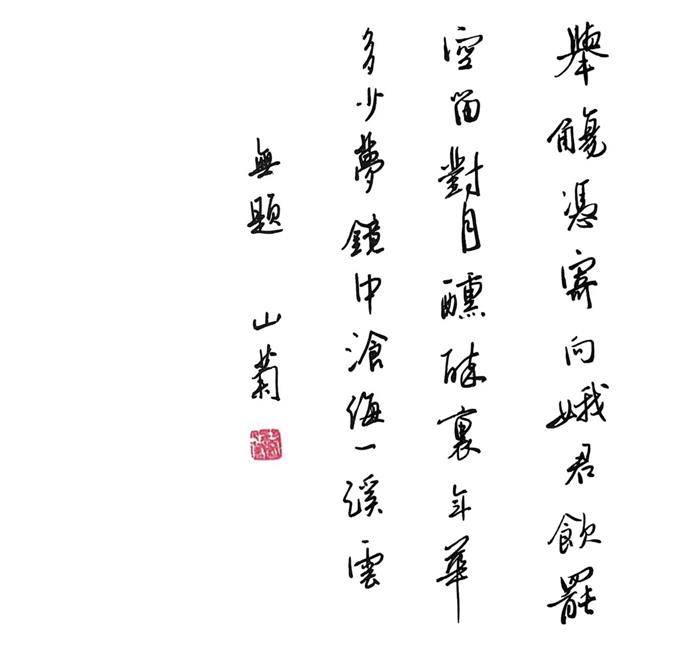 舉觴憑寄向娥君飲罷
空留對月醺酥裏年華
多少夢鏡中滄海一溪雲
無題 山菊